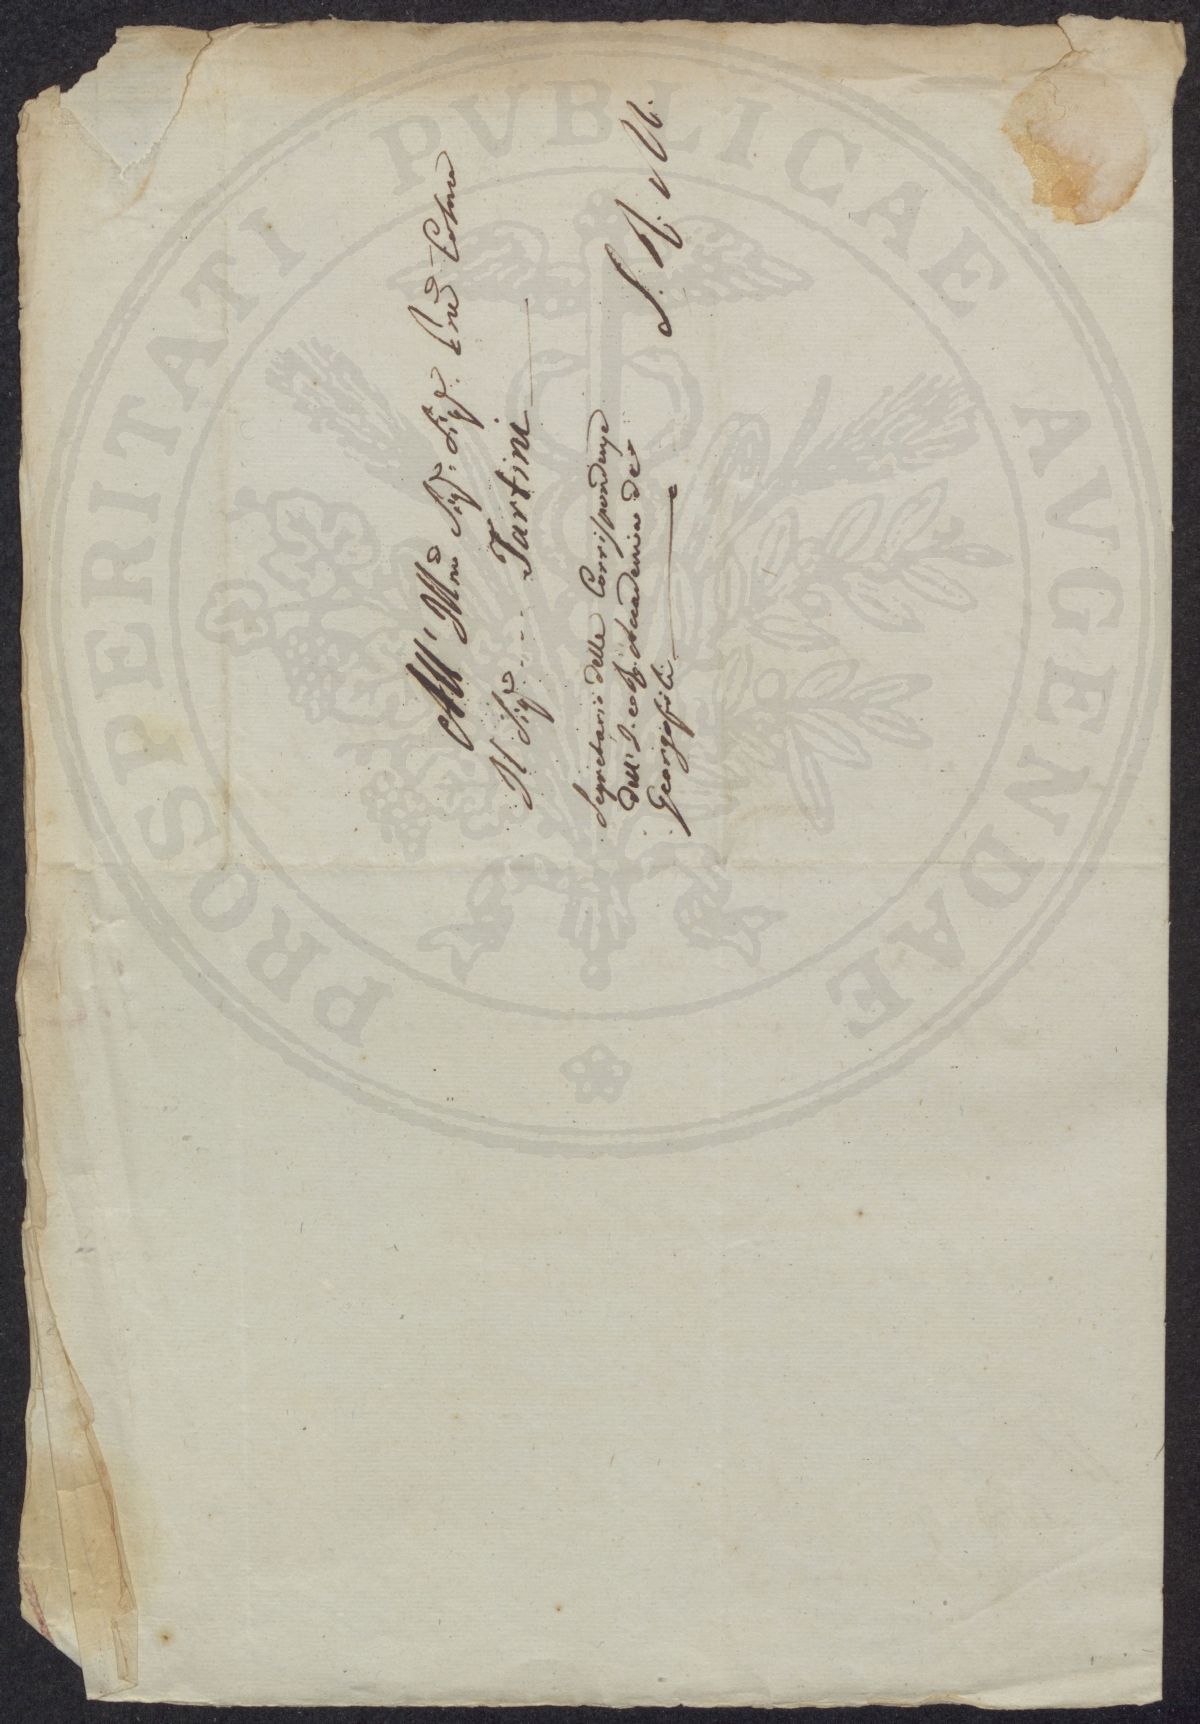 All' Ill.mo Sig.r Sig.r P.ne Col.mo
Il Sig.r .... Tartini
Segretario delle Corrispondenze
dell' I. e R. Accademia de
Georgofili
S. R. M.
PROSPERITATI PVBLICAE AVGENDAE